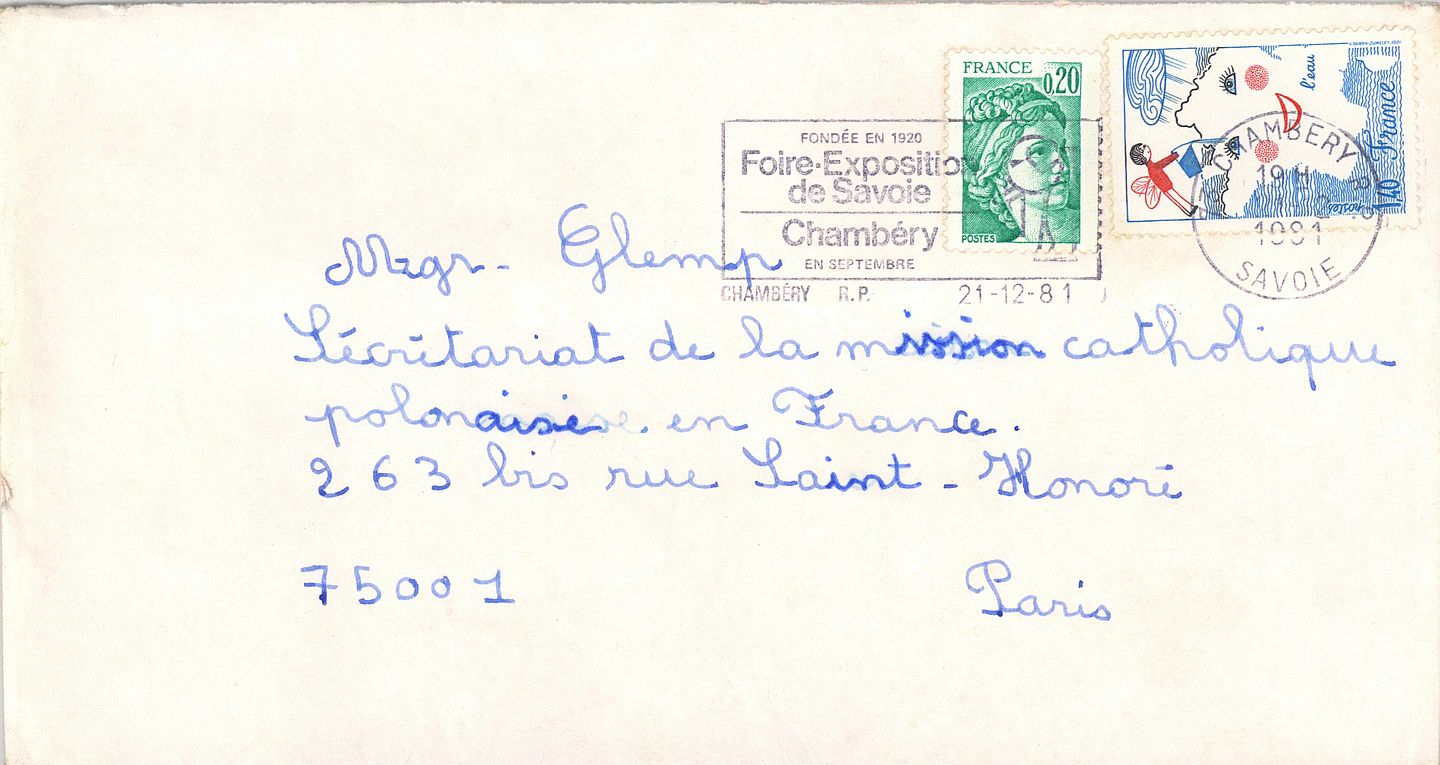 FRANCE
0,20
POSTES
l'eau
France
1,40
POSTES
FONDÉE EN 1920
Foire-Exposition
de Savoie
Chambéry
EN SEPTEMBRE
CHAMBÉRY R.P. 21-12-81
CHAMBERY R.P.
19 H
1981
SAVOIE
Mzgr- Glemp
Sécrétariat de la mission catholique
polonaise. en France.
263 bis rue Saint-Honoré
75001 Paris